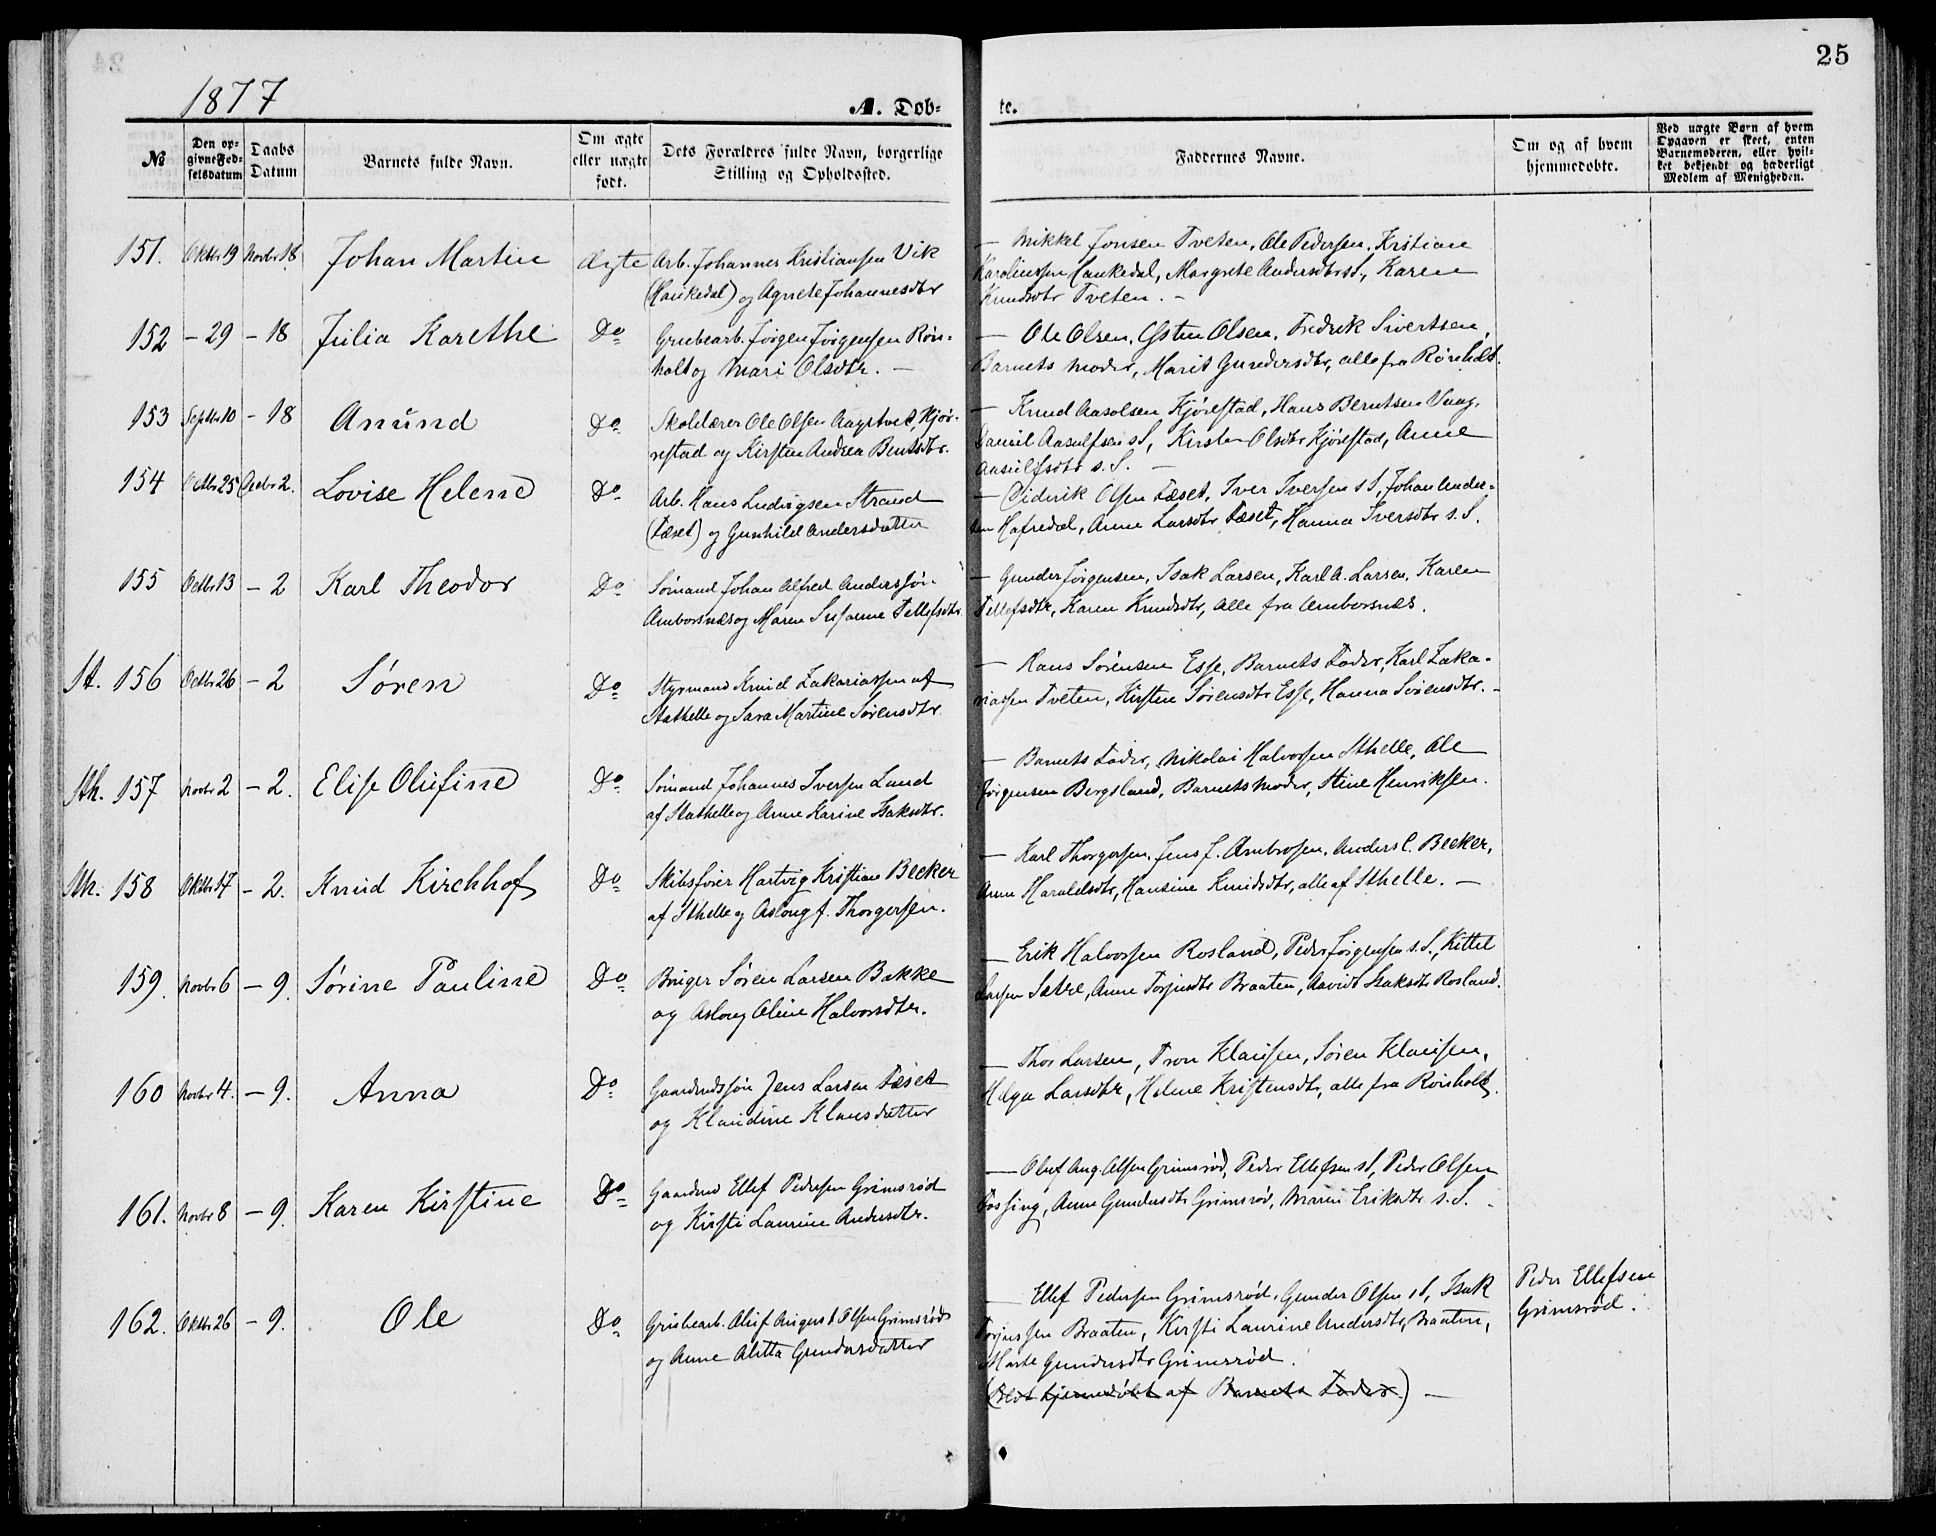 25
1877
A. Døb-
te.
No
Den op-
givne Fød-
selsdatum
Daabs
Datum
Barnets fulde Navn.
Om ægte
eller uægte
født.
Dets Forældres fulde Navn, borgerlige
Stilling og Opholdssted.
Faddernes Navne.
Om og af hvem
hjemmedøbte.
Ved uægte Børn af hvem
Opgaven er skeet, enten
Barnemoderen, eller hvil-
ket bekjendt og hæderligt
Medlem af Menigheden.
151. Oktbr 19 Novbr 18 Johan Martin ægte Arb. Johannes Kristiansen Vik
(Haukedal) og Agnete Johannesdtr
— Mikkel Jonsen Tveten, Ole Pedersen, Kristian
Karolinssen Haukedal, Margrete Andersdtr s.S., Karen
Knudsdtr Tveten. —
152 – 29 – 18 Julia Karethe Do Grubearb. Jørgen Jørgensen Røn-
holt og Mari Olsdtr. —
— Ole Olsen, Østen Olsen, Fredrik Sivertsen,
Barnets Moder, Marit Gundersdtr, alle fra Rønholt.
153 Septbr 10 – 18 Anund Do Skolelærer Ole Olsen Aagetveit, Kjør-
restad og Kirsten Andrea Bentsdtr.
— Knud Aasolsen Kjørestad, Hans Berntsen Vaag,
Daniel Aasulfsen s.S, Kirsten Olsdtr Kjørestad, Anne
Aasulfsdtr s.S. —
154 Octbr 25 Decbr 2. Lovise Helene Do Arb. Hans Ludvigsen Strand
(Fæset) og Gunhild Andersdatter
— Didrik Olsen Fæset, Iver Iversen s.S, Johan Ander-
sen Hafredal, Anne Larsdtr Fæset, Hanna Iversdtr s.S.
155 Octbr 13 – 2 Karl Theodor Do Sømand Johan Alfred Anderssøn
Amborsnæs og Maren Susanne Tellefsdtr.
— Gunder Jørgensen, Isak Larsen, Karl A. Larsen, Karen
Tellefsdtr, Karen Knudsdtr, alle fra Amborsnæs.
St. 156 Octbr 26 – 2 Søren Do Styrmand Knud Zakariassen af
Stathelle og Sara Martine Sørensdtr.
— Hans Sørensen Esse, Barnets Fader, Karl Zaka-
riassen Tveten, Kirsten Sørensdtr Esse, Hanna Sørensdtr. —
Sth. 157 Novbr 2 – 2. Elise Olufine Do Sømand Johannes Iversen Lund
af Stathelle og Anne Karine Isaksdtr.
— Barnets Fader, Nikolai Halvorsen Sthelle, Ole
Jørgensen Bergsland, Barnets Moder, Stine Henriksen.
Sth. 158 Oktbr 17 – 2. Knud Kirchhof Do Skibsfører Hartvig Kristian Becker
af Sthelle og Aslaug f. Thorgersen.
— Karl Thorgersen, Jens J. Ambrosen, Anders C. Becker,
Anne Haraldsdtr, Hansine Knudsdtr, alle af Sthelle. —
159. Novbr 6 – 9. Sørine Pauline Do Bruger Søren Larsen Bakke
og Aslaug Oline Halvorsdtr.
— Erik Halvorsen Rosland, Peder Jørgensen s.S., Kittel
Larsen Sætre, Anne Torjusdtr Braaten, Isaksdtr Rosland.
160 Novbr 4. – 9. Anna Do Gaardmdssøn Jens Larsen Fæset
og Klaudine Klausdatter
— Thor Larsen, Tron Klausen, Søren Klausen,
Helga Larsdtr, Helene Kristensdtr, alle fra Rønholt.
161. Novbr 8 – 9. Karen Kirstine Do Gaardmd Ellef Pedersen Grimsrød
og Kirsti Laurine Andersdtr.
— Oluf Aug. Olsen Grimsrød, Peder Ellefsen s.S, Peder Olsen
Fossing, Anne Gundersdtr Grimsrød, Maren Eriksdtr s.S. —
162. Oktbr 26 – 9. Ole Do Grubearb. Oluf August Olsen Grimsrød
og Anne Alitta Gundersdatter
— Ellef Pedersen Grimsrød, Gunder Olsen s.S, Isak
Torjussen Braaten, Kirsti Laurine Andersdtr, Braaten,
Marte Gundersdtr Grimsrød.
(Blev hjemmedøbt af Barnets Fader.) —
Peder Ellefsen
Grimsrød.